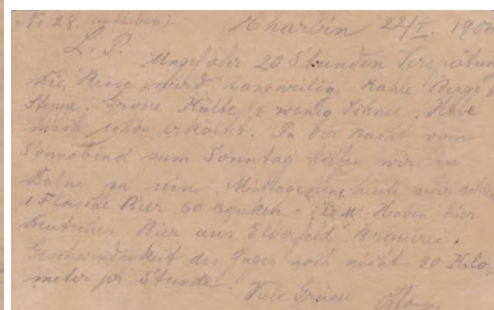 No 28. aufheben) Charbin 22/I. 190
L. P.
Ungefähr 20 Stunden Verspätun
Die Reise wird langweilig. Kahle Berge &
Steppe. Grosse Kälte & wenig Schnee. Habe
mich schon erkältet. In der Nacht vom
Sonnabend zum Sonntag hoffen wir in
zu sein. Mittagessen heute sehr
1 Flasche Bier 60 Kopeken = Haben hier
Deutsches Bier aus Elberfeld Brauerei.
Geschwindigkeit des Zuges noch nicht 30 Kilo,
meter pr Stunde. Viele Grüsse